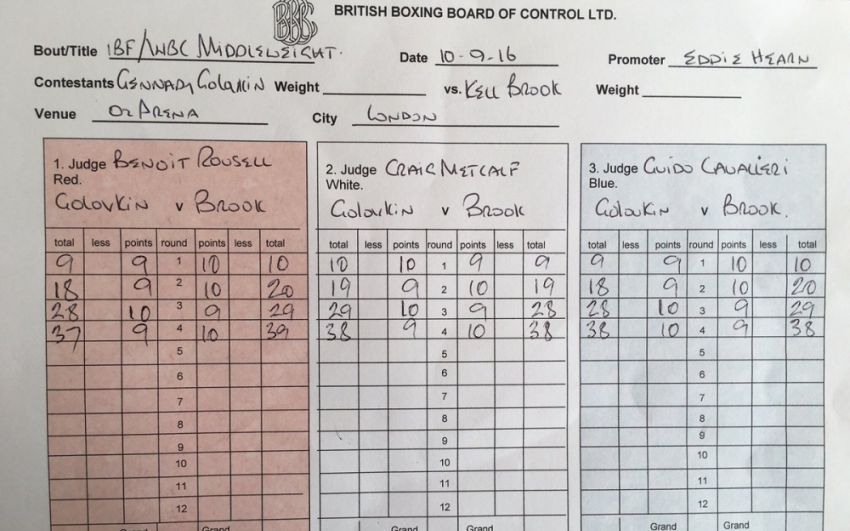 BBBC
BRITISH BOXING BOARD OF CONTROL LTD.
Bout/Title IBF/WBC MIDDLEWEIGHT. Date 10-9-16 Promoter EDDIE HEARN
Contestants GENNADY GOLOVKIN Weight vs. KELL BROOK Weight
Venue O2 ARENA City LONDON
1. Judge BENOIT ROUSELL
Red.
GOLOVKIN v BROOK
total less points round points less total
9 9 1 10 10
18 9 2 10 20
28 10 3 9 29
37 9 4 10 39
5
6
7
8
9
10
11
12
Grand Grand
2. Judge CRAIG METCALF
White.
GOLOVKIN v BROOK
total less points round points less total
10 10 1 9 9
19 9 2 10 19
29 10 3 9 28
38 9 4 10 38
5
6
7
8
9
10
11
12
Grand Grand
3. Judge GUIDO CAVALIERI
Blue.
GOLOVKIN v BROOK.
total less points round points less total
9 9 1 10 10
18 9 2 10 20
28 10 3 9 29
38 10 4 9 38
5
6
7
8
9
10
11
12
Grand Grand